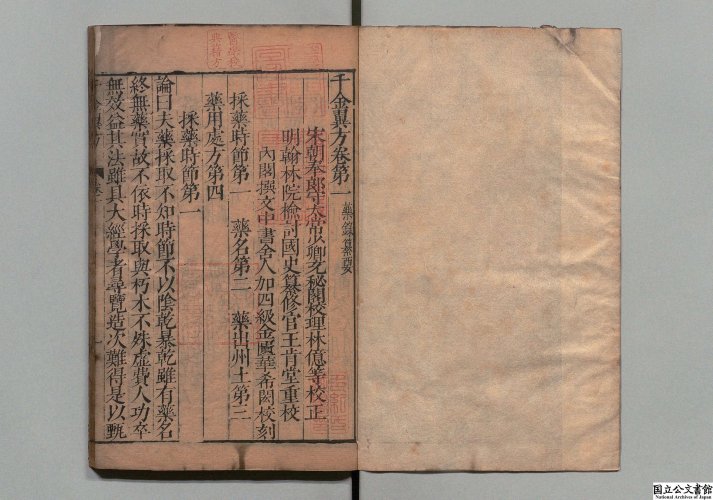 千金翼方卷第一 藥錄纂要
宋朝奉郎守太常少卿充秘閣校理林億等校正
明翰林院檢討國史纂修官王肯堂重校
內閣撰文中書舍人加四級金匱華希閎校刻
採藥時節第一 藥名第二 藥出州土第三
藥用處方第四
採藥時節第一
論曰夫藥採取不知時節不以陰乾暴乾雖有藥名
終無藥實故不依時採取與朽木不殊虛費人功卒
無效益其法雖具大經學者尋覽造次難得是以甄
千金翼方
一
國立公文書館
National Archives of Japan